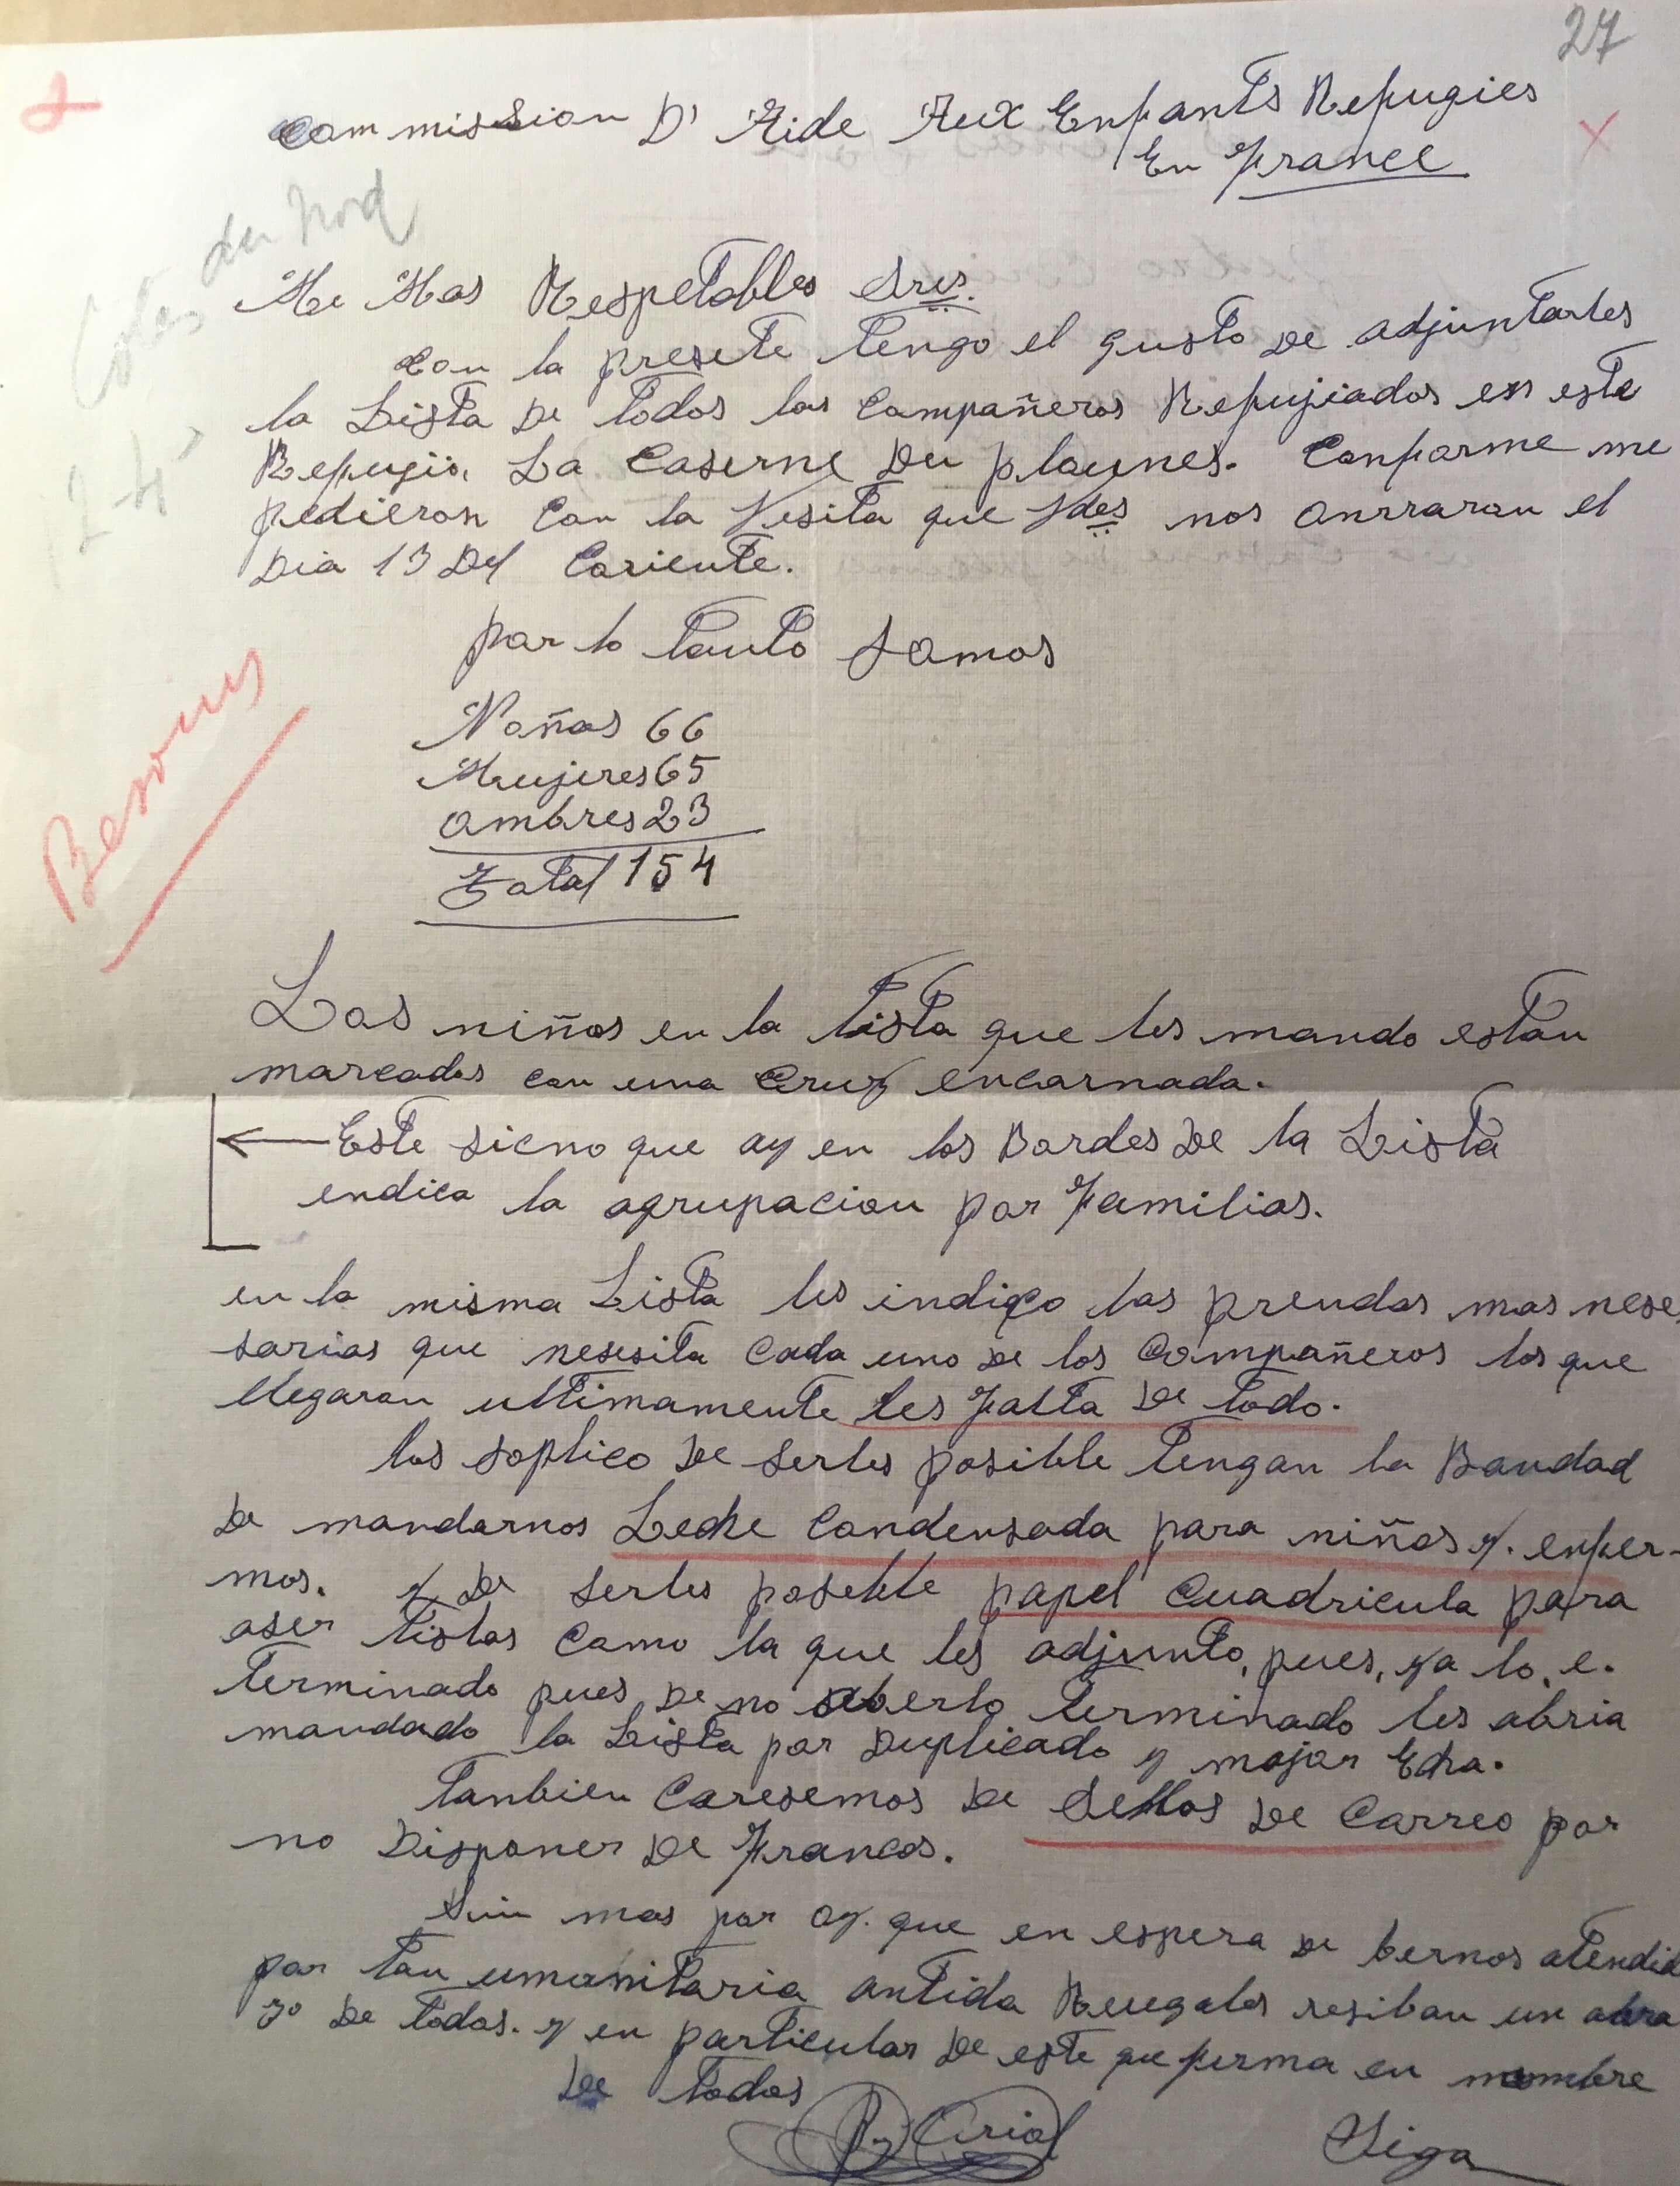 27
Commission D' Aide Aux Enfants Refugies
En France
Cotes du Nord
24
Mi Mas Respetables Sres.
Con la presete tengo el gusto de adjuntarles
la Lista de todos los Compañeros Refujiados en este
Refugio, La Caserne Du plaunes. Conforme me
pidieron con la Vesita que Vdes nos onrraron el
Dia 13 Del Coriente.
por lo tanto somos
Noños 66
Mujeres 65
ombres 23
Total 154
Besoins
Los niños en la Lista que les mando estan
marcados con una Cruz encarnada.
Este sicno que ay en los Bordes De la Lista
endica la agrupacion por Familias.
en la misma Lista les indico las prendas mas nese
sarias que nesesita Cada uno De los Compañeros los que
llegaron ultimamente les Falta De todo.
les soplico De serles posible tengan la Bondad
De mandarnos Leche Condensada para niños y. enfer-
mos. y De serles posible papel Cuadricula para
aser listas como la que les adjunto, pues, ya lo, e.
terminado pues De no aberlo terminado les abria
mandado la Lista por Duplicado y mojor Echa.
Tanbien Caresemos De Sellos De Correo por
no Disponer De Francos.
Sin mas por oy. que en espera De bernos atendid
por tan umanitaria antida Reugalos resiban un abra
zo De todos. y en particular De este que firma en nombre
De todos
Sige